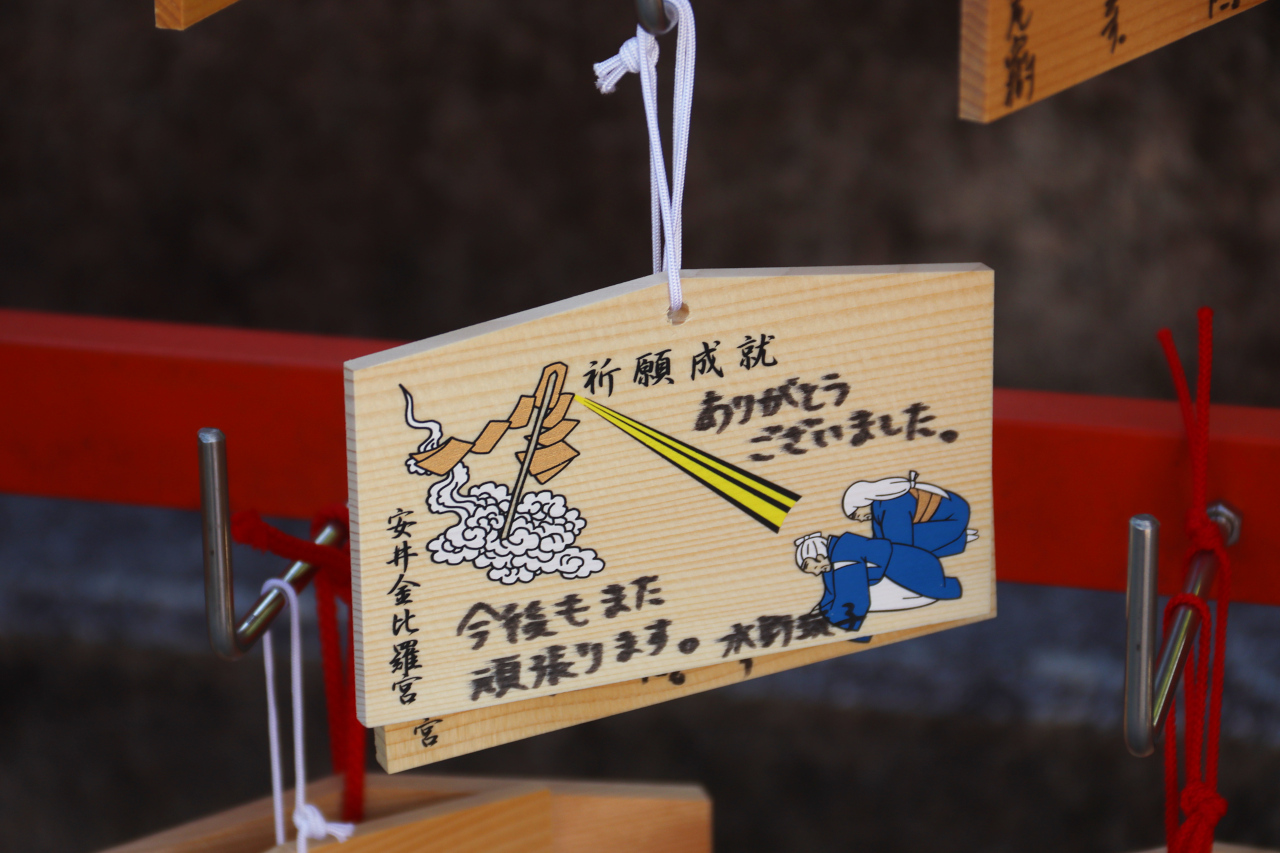 祈願成就
ありがとう
ございました。
安井金比羅宮
今後もまた
頑張ります。
宮
ます。